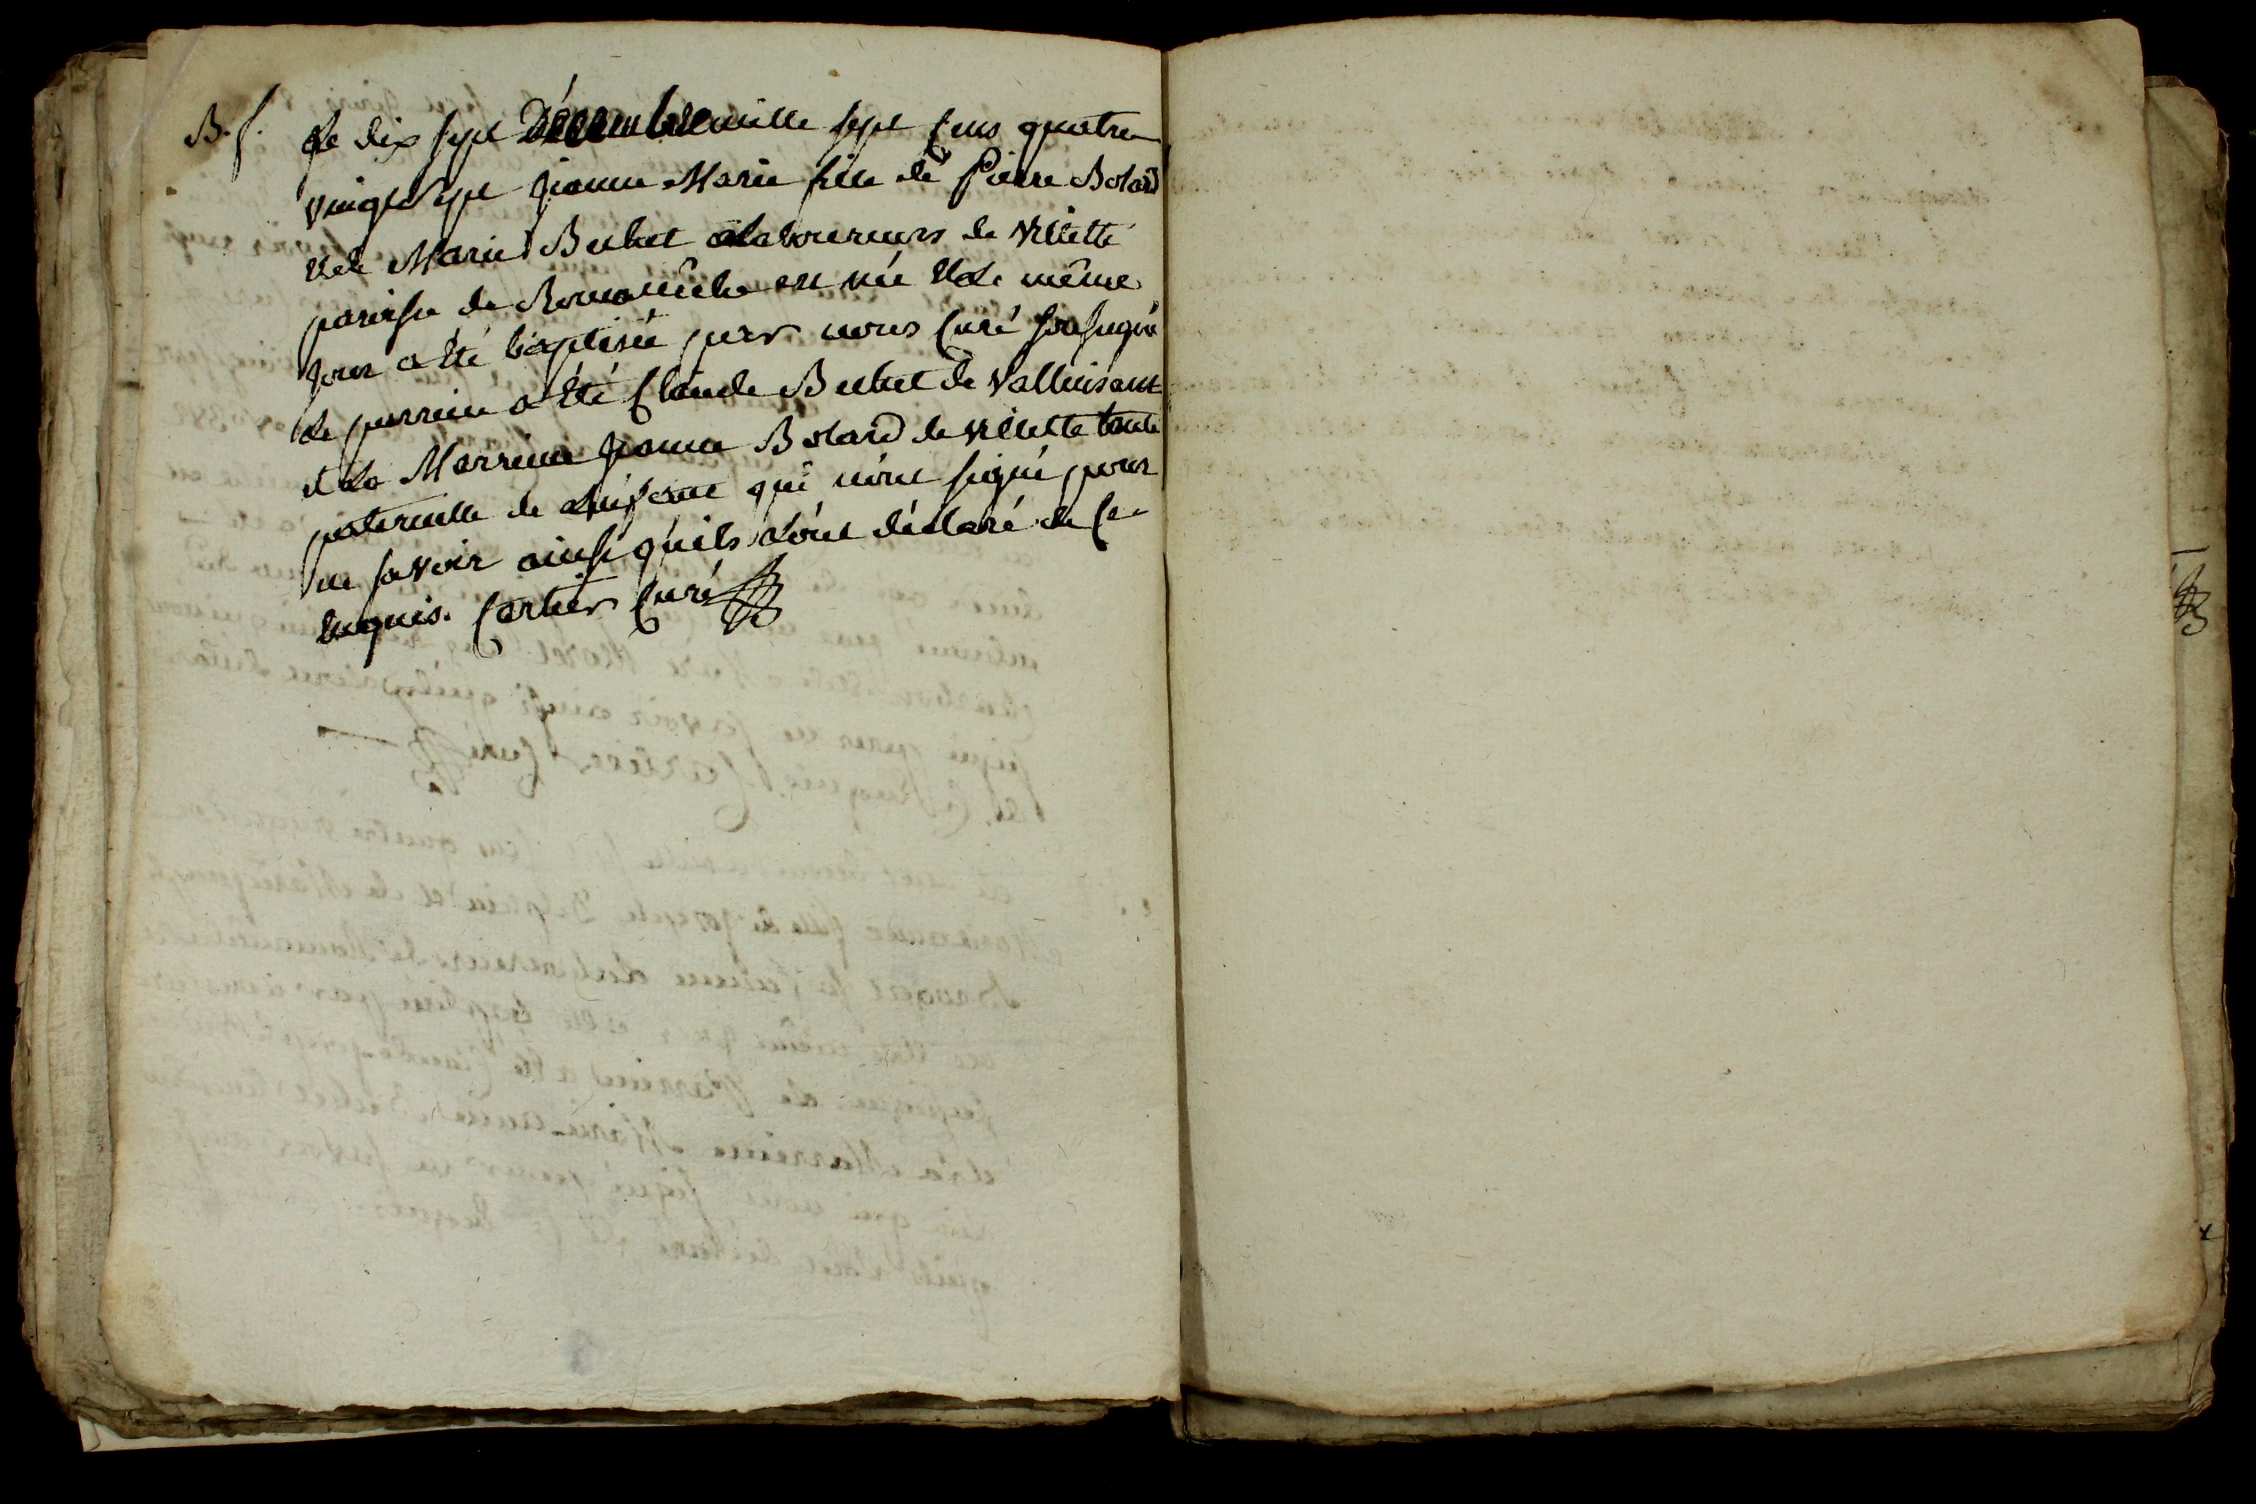 B. f.
Le dix sept Décembre mille sept Cens quatre
vingt sept jeanne Marie fille de Pierre Bolard
et de Marie Buhet laboureurs de villette
paroisse de Romanêche est née et le même
jour a été baptisée par nous Curé soussigné
le parrein a été Claude Buhet de Valluisant
et la Marreine jeanne Bolard de villette tante
paternelle de qui n'ont signé pour
ne savoir ainsi qu'ils l'ont déclaré de Ce
enquis. Cartier Curé